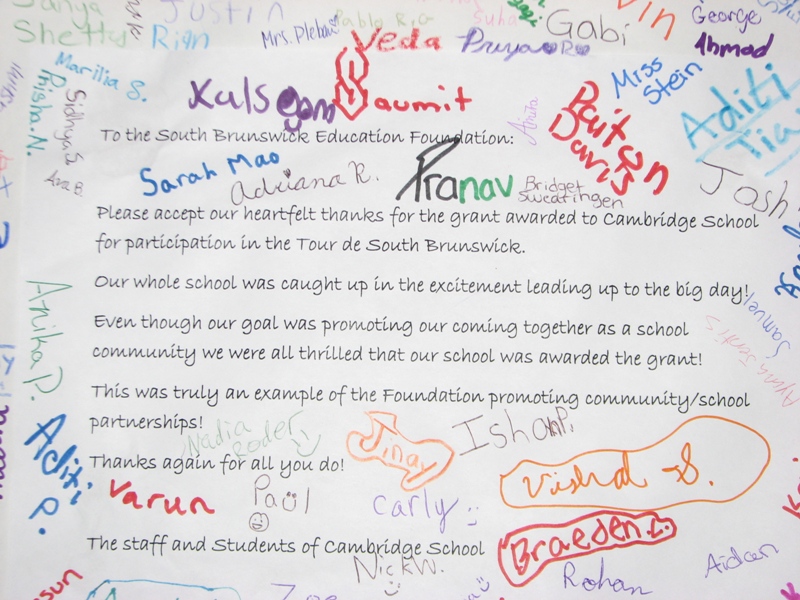 Justin
Pablo Rio
Suha
Gabi
George
Shetty
Rian
Mrs. Pleban
Veda
Priya R
Ahmad
Marilia S.
Miss
Stein
Aditi
Kulsoom
Saumit
Anita
Payton
Davis
Tia
Prisha N.
Sidhya S
To the South Brunswick Education Foundation:
Sarah Mao
Adriana R.
Pranav
Bridget
Sweatingen
Josh
Ava B.
Please accept our heartfelt thanks for the grant awarded to Cambridge School
for participation in the Tour de South Brunswick.
Our whole school was caught up in the excitement leading up to the big day!
Anika P.
Samuel
Even though our goal was promoting our coming together as a school
community we were all thrilled that our school was awarded the grant!
This was truly an example of the Foundation promoting community/school
partnerships!
Nadia
Roder
Jinay
Ishani P.
Aditi
P.
Thanks again for all you do!
Vishal S.
Varun
Paul
Carly
The staff and Students of Cambridge School
Braeden L.
Nick W.
Rohan
Aidan
Zoe